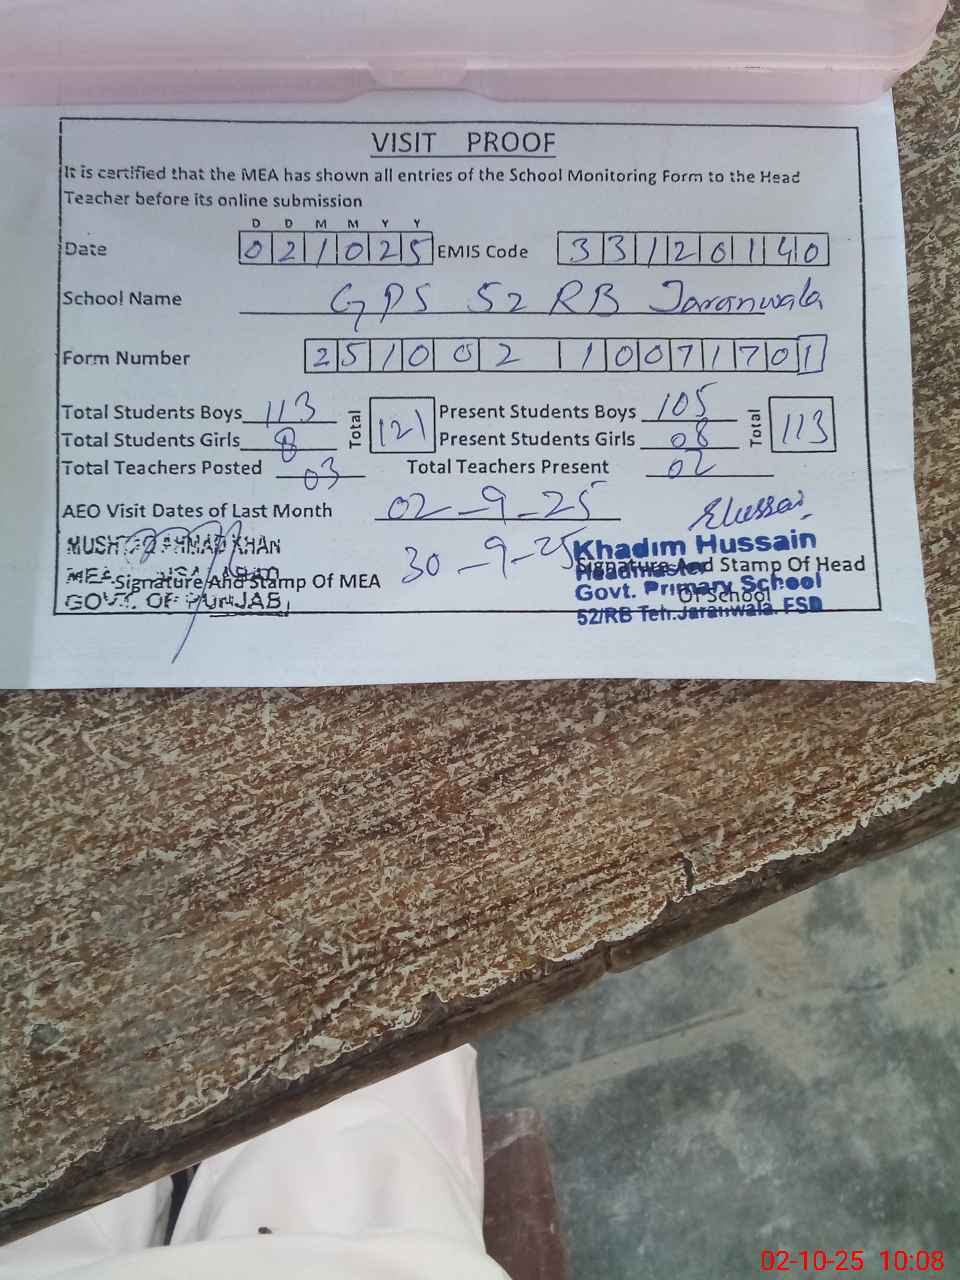 VISIT PROOF
It is certified that the MEA has shown all entries of the School Monitoring Form to the Head
Teacher before its online submission
D D M M Y Y
Date 021025 EMIS Code 33120140
School Name GPS 52 RB Jaranwala
Form Number 251002 10071701
Total Students Boys 113 Total 121 Present Students Boys 105 Total 113
Total Students Girls 8 Present Students Girls 08
Total Teachers Posted 03 Total Teachers Present 02
AEO Visit Dates of Last Month 02-9-25
30-9-25
MUSHTAQ AHMAD KHAN
MEA
GOVT. OF PUNJAB
Signature And Stamp Of MEA
Khadim Hussain
Headmaster
Govt. Primary School
52/RB Teh.Jaranwala. FSD
Signature And Stamp Of Head
Of School
02-10-25 10:08